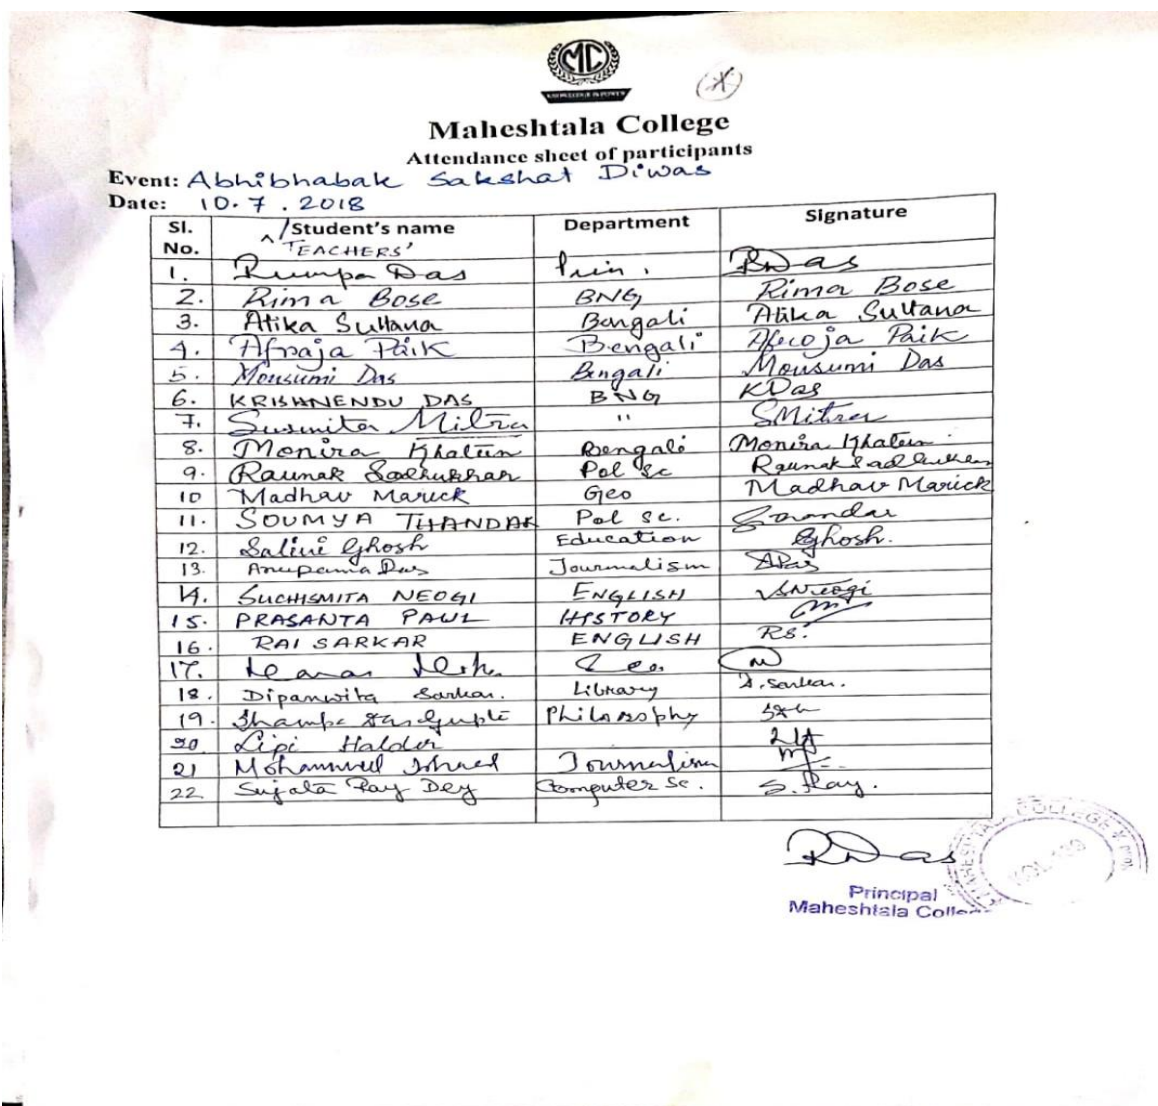 MC
KNOWLEDGE IS POWER
Maheshtala College
Attendance sheet of participants
Event: Abhibhabak Sakshat Diwas
Date: 10.7.2018
Sl. No. /Student's name TEACHERS' Department Signature
1. Rumpa Das Prin. RDas
2. Rima Bose BNG Rima Bose
3. Atika Sultana Bengali Atika Sultana
4. Afroja Paik Bengali Afroja Paik
5. Mousumi Das Bengali Mousumi Das
6. KRISHNENDU DAS BNG KDas
7. Susmita Mitra " SMitra
8. Monira Khatun Bengali Monira Khatun
9. Raunak Sadhukhan Pol Sc Raunak Sadhukhan
10 Madhav Marick Geo Madhav Marick
11. SOUMYA THANDAR Pol Sc.
12. Salini Ghosh Education Ghosh.
13. Anupama Das Journalism ADas
14. SUCHISMITA NEOGI ENGLISH SNeogi
15. PRASANTA PAUL HISTORY
16. RAI SARKAR ENGLISH RS.
17. Geo.
18. Dipanwita Sarkar. Library D. Sarkar.
19. Shampa Dasgupta Philosophy
20 Lipi Halder
21 Mohammed Journalism
22 Sujata Ray Dey Computer Sc. S. Ray.
RDas
Principal
Maheshtala College